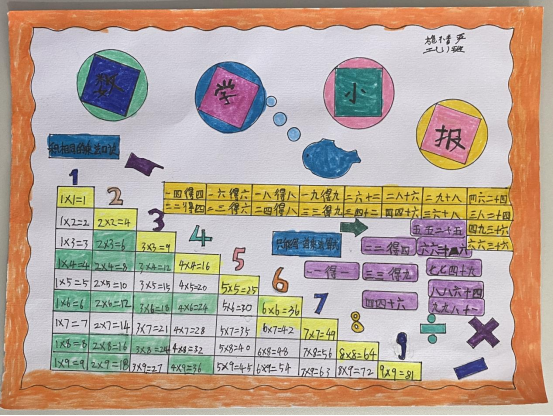 数学小报
积相同的乘法口诀
1 2 3 4 5 6 7 8 9
一四得四 一六得六 一八得八 一九得九 二六十二 二八十六 二九十八 四六二十四
二二得四 二三得六 二四得八 三三得九 三四十二 四四十六 三六十八 三八二十四
四九三十六
六六三十六
五五二十五
二二得四 六六三十六
一一得一 三三得九 七七四十九
四四十六 八八六十四
九九八十一
1×1=1
1×2=2 2×2=4
1×3=3 2×3=6 3×3=9
1×4=4 2×4=8 3×4=12 4×4=16
1×5=5 2×5=10 3×5=15 4×5=20 5×5=25
1×6=6 2×6=12 3×6=18 4×6=24 5×6=30 6×6=36
1×7=7 2×7=14 3×7=21 4×7=28 5×7=35 6×7=42 7×7=49
1×8=8 2×8=16 3×8=24 4×8=32 5×8=40 6×8=48 7×8=56 8×8=64
1×9=9 2×9=18 3×9=27 4×9=36 5×9=45 6×9=54 7×9=63 8×9=72 9×9=81
÷ ×